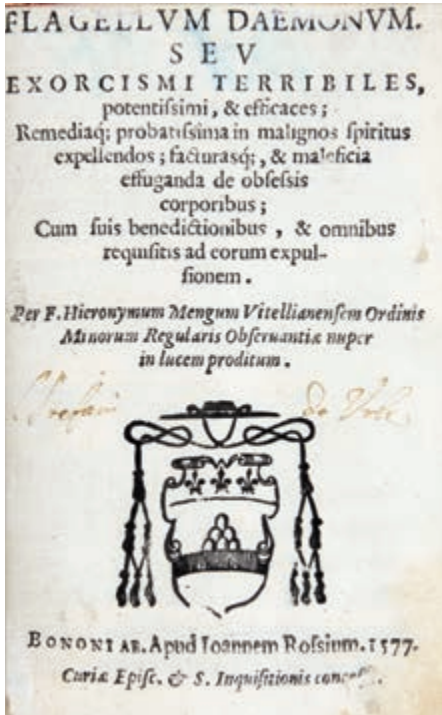 FLAGELLVM DAEMONVM.
SEV
EXORCISMI TERRIBILES,
potentiſsimi, & efficaces;
Remediaq; probatiſsima in malignos ſpiritus
expellendos; facturasq;, & maleficia
effuganda de obſeſsis
corporibus;
Cum ſuis benedictionibus, & omnibus
requiſitis ad eorum expul-
ſionem.
Per F. Hieronymum Mengum Vitellianenſem Ordinis
Minorum Regularis Obſeruantiæ nuper
in lucem proditum.
de
BONONIAE. Apud Ioannem Roſsium. 1577.
Curiæ Epiſc. & S. Inquiſitionis